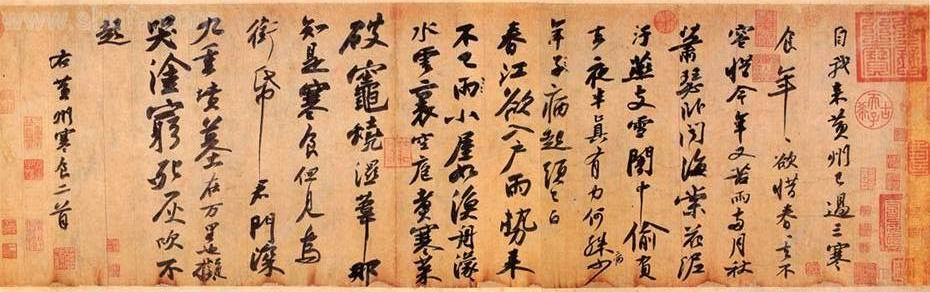 自我來黃州已過三寒
食年〻欲惜春〻去不
容惜今年又苦雨兩月秋
蕭瑟卧聞海棠花泥
汙燕支雪闇中偷負
去夜半真有力何殊病少
年子病起頭已白
春江欲入户雨勢來
不已雨小屋如漁舟濛〻
水雲裏空庖煑寒菜
破竈燒濕葦那
知是寒食但見烏
銜帋君門深
九重墳墓在万里也擬
哭塗窮死灰吹不
起
右黃州寒食二首